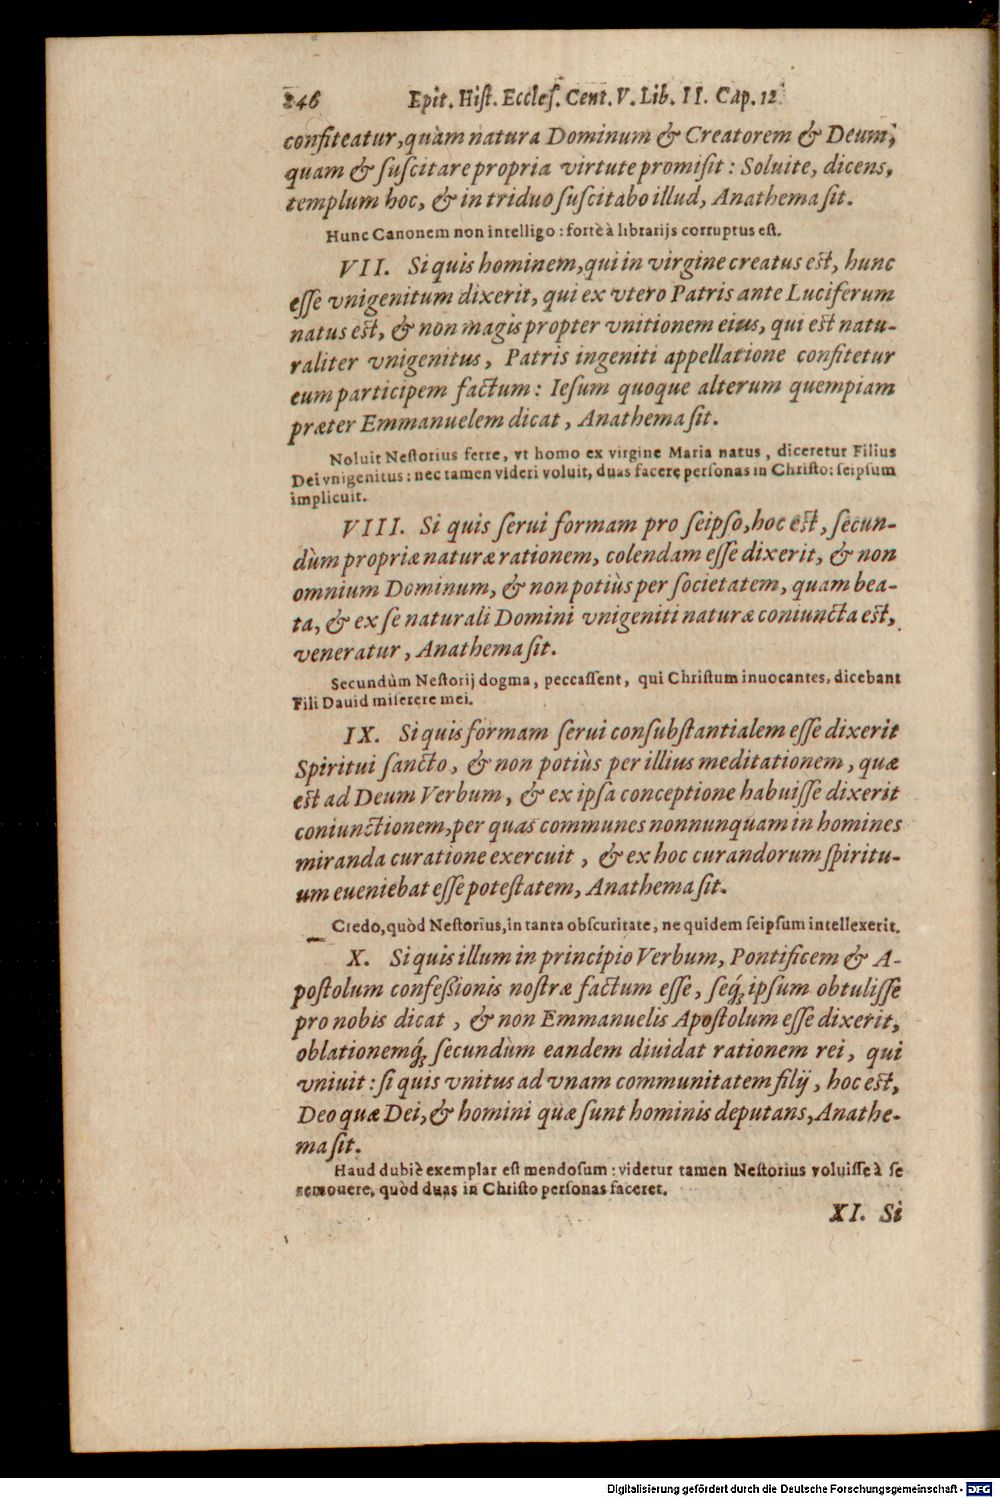 246 Epit. Hiſt. Eccleſ. Cent. V. Lib. II. Cap. 12
confiteatur, quàm natura Dominum & Creatorem & Deum,
quam & ſuſcitare propria virtute promiſit: Soluite, dicens,
templum hoc, & in triduo ſuſcitabo illud, Anathema ſit.
Hunc Canonem non intelligo: fortè à librarijs corruptus eſt.
VII. Si quis hominem, qui in virgine creatus eſt, hunc
eſſe vnigenitum dixerit, qui ex vtero Patris ante Luciferum
natus eſt, & non magis propter vnitionem eius, qui eſt natu-
raliter vnigenitus, Patris ingeniti appellatione confitetur
eum participem factum: Ieſum quoque alterum quempiam
præter Emmanuelem dicat, Anathema ſit.
Noluit Neſtorius ferre, vt homo ex virgine Maria natus, diceretur Filius
Dei vnigenitus: nec tamen videri voluit, duas facere perſonas in Chriſto: ſeipſum
implicuit.
VIII. Si quis ſerui formam pro ſeipſo, hoc eſt, ſecun-
dùm propriæ naturæ rationem, colendam eſſe dixerit, & non
omnium Dominum, & non potiùs per ſocietatem, quam bea-
ta, & ex ſe naturali Domini vnigeniti naturæ coniuncta eſt,
veneratur, Anathema ſit.
Secundùm Neſtorij dogma, peccaſſent, qui Chriſtum inuocantes, dicebant
Fili Dauid miſerere mei.
IX. Si quis formam ſerui conſubſtantialem eſſe dixerit
Spiritui ſancto, & non potiùs per illius meditationem, quæ
eſt ad Deum Verbum, & ex ipſa conceptione habuiſſe dixerit
coniunctionem, per quas communes nonnunquam in homines
miranda curatione exercuit, & ex hoc curandorum ſpiritu-
um eueniebat eſſe poteſtatem, Anathema ſit.
Credo, quòd Neſtorius, in tanta obſcuritate, ne quidem ſeipſum intellexerit.
X. Si quis illum in principio Verbum, Pontificem & A-
poſtolum confeßionis noſtræ factum eſſe, ſeq́ ipſum obtuliſſe
pro nobis dicat, & non Emmanuelis Apoſtolum eſſe dixerit,
oblationemq́ ſecundùm eandem diuidat rationem rei, qui
vniuit: ſi quis vnitus ad vnam communitatem filij, hoc eſt,
Deo quæ Dei, & homini quæ ſunt hominis deputans, Anathe-
ma ſit.
Haud dubiè exemplar eſt mendoſum: videtur tamen Neſtorius voluiſſe à ſe
remouere, quòd duas in Chriſto perſonas faceret.
XI. Si
Digitalisierung gefördert durch die Deutsche Forschungsgemeinschaft - DFG